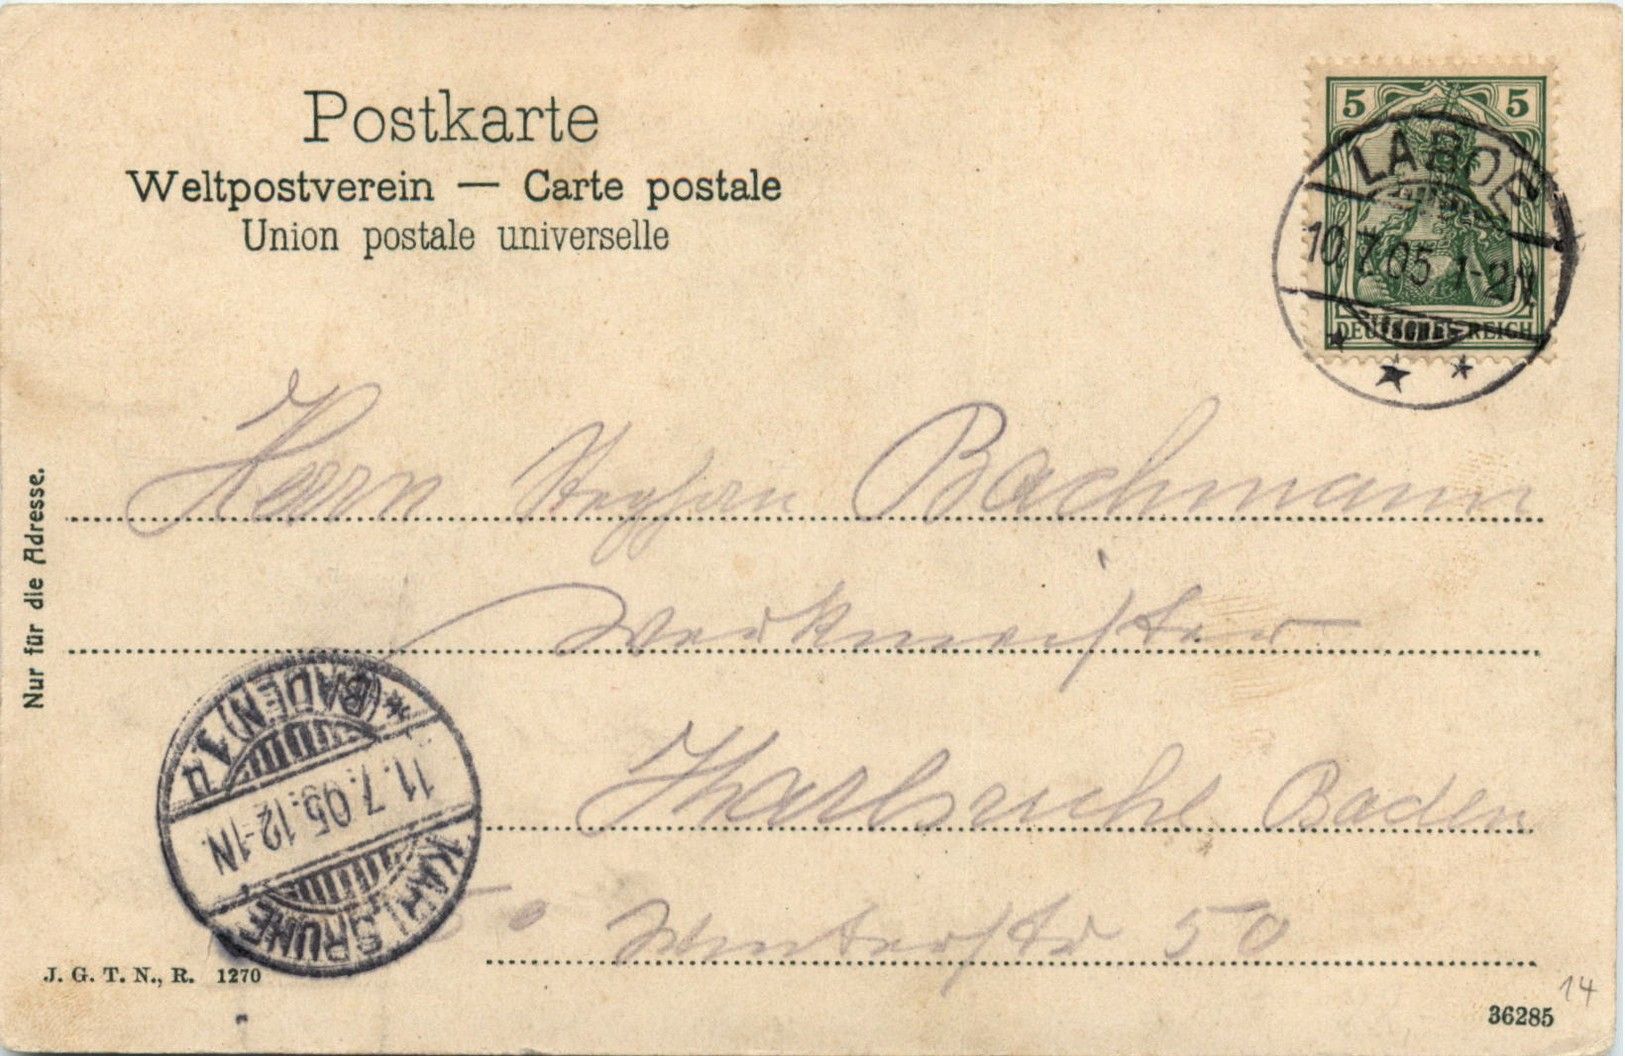 Postkarte
Weltpostverein — Carte postale
Union postale universelle
5 5
LABOE
10.7.05 1-2N
DEUTSCHES REICH
Nur für die Adresse.
Herrn Stephan Bachmann
Werkmeister
Karlsruhe Baden
Winterstr 50
KARLSRUHE
11.7.05.12-1N
(BADEN) 1
J. G. T. N., R. 1270
36285
14